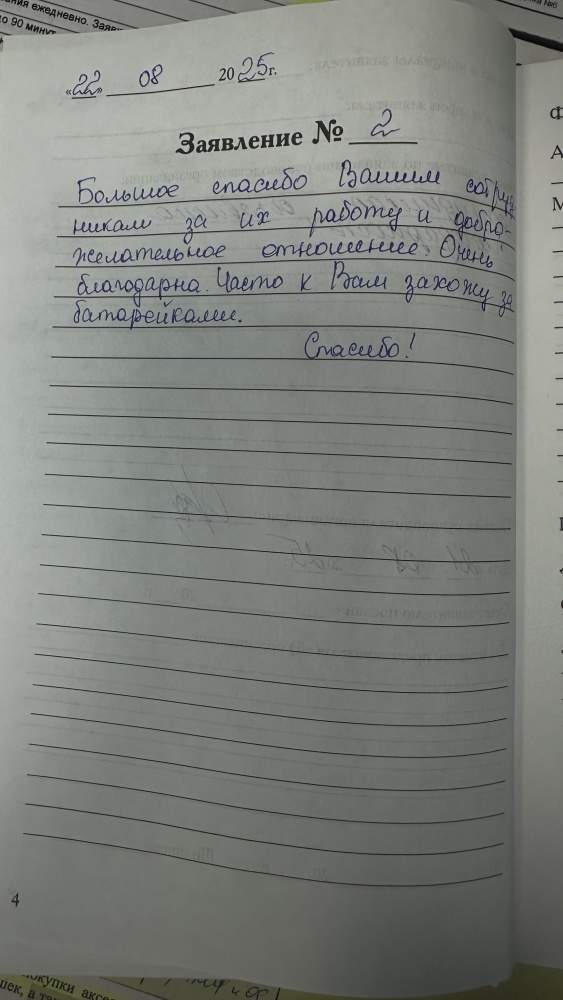 ания ежедневно. Заяв
о 90 минут
«22» 08 2025г.
Заявление № 2
Большое спасибо Вашим сотруд
никам за их работу и добро-
желательное отношение. Очень
благодарна. Часто к Вам захожу за
батарейками.
Спасибо!
4
Ф
А
М
покупки аксе